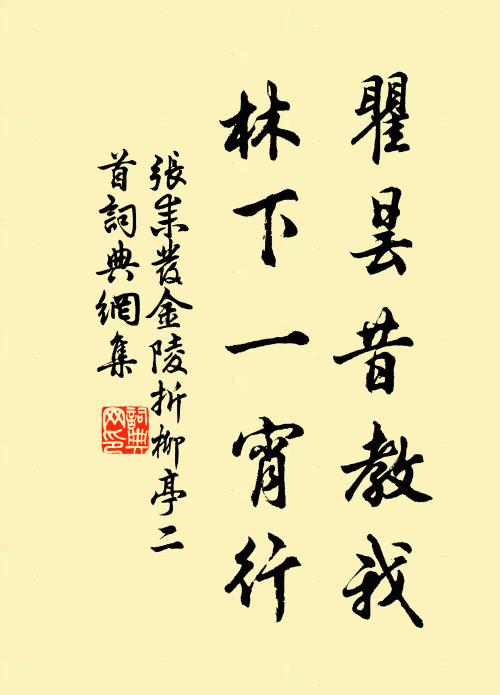 瞿昙昔教我
林下一宵行
張耒發金陵折柳亭二
首詞典網集
詞典网印